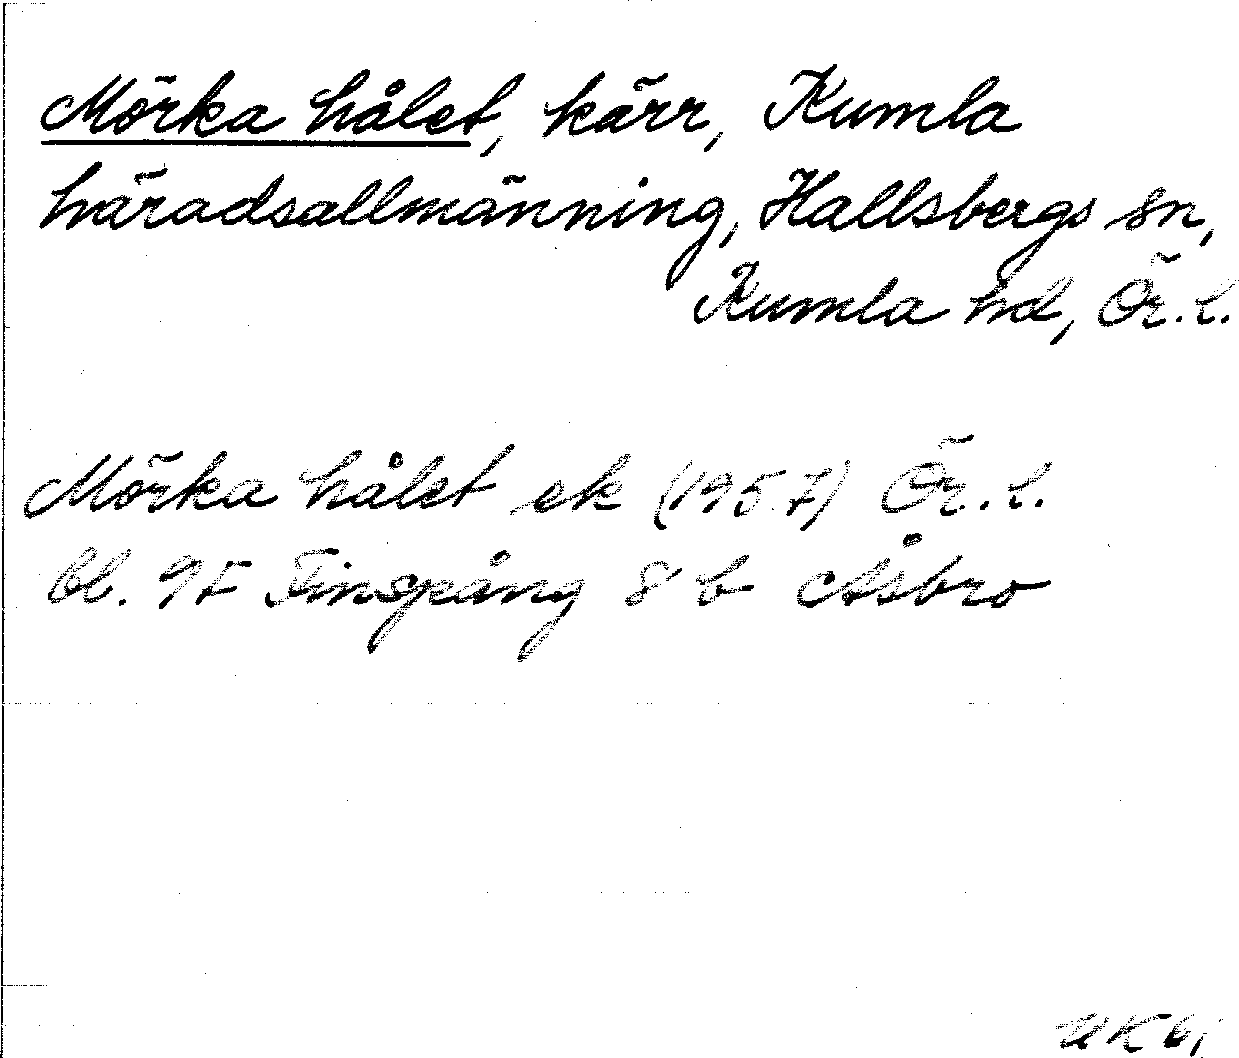 Mörka hålet, kärr, Kumla
häradsallmänning, Hallsbergs sn,
Kumla hd, Ör. l.
Mörka hålet ek (1957) Ör. l.
bl. 97 Finspång 8 b Åsbro